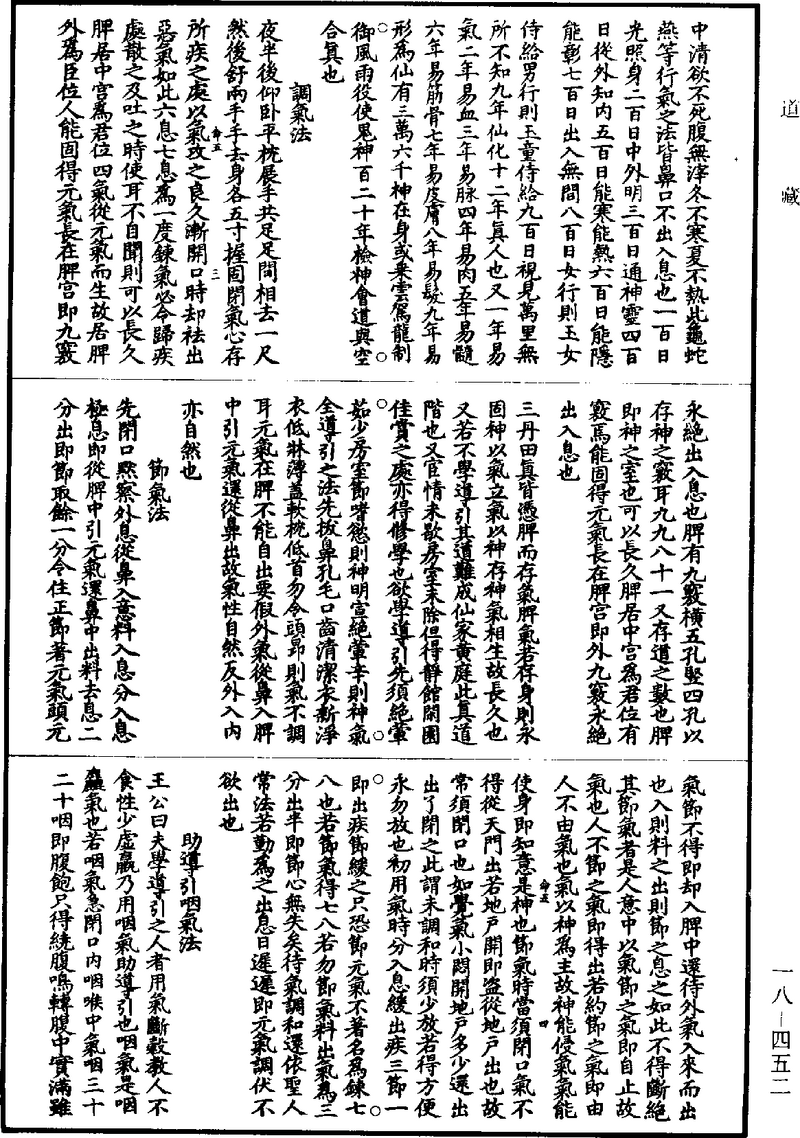 道藏
中清欲不死腹無滓冬不寒夏不熱此龜蛇
燕等行氣之法皆鼻口不出入息也一百日
光照身二百日中外明三百日通神靈四百
日從外知內五百日能寒能熱六百日能隱
能彰七百日出入無間八百日女行則玉女
侍給男行則玉童侍給九百日視見萬里無
所不知九年仙化十二年真人也又一年易
氣二年易血三年易脉四年易肉五年易髓
六年易筋骨七年易皮膚八年易髮九年易
形為仙有三萬六千神在身或乘雲駕龍制
御風雨役使鬼神百二十年檢神會道與空
合真也
調氣法
夜半後仰卧平枕展手共足足間相去一尺
然後舒兩手手去身各五寸握固閉氣心存
所疾之處以氣攻之良久漸開口時却袪出
命五
三
惡氣如此六息七息為一度鍊氣必令歸疾
處散之及吐之時使耳不自聞則可以長久
脾居中宮為君位四氣從元氣而生故居脾
外為臣位人能固得元氣長在脾宮即九竅
永絕出入息也脾有九竅橫五孔竪四孔以
存神之竅耳九九八十一又存道之數也脾
即神之室也可以長久脾居中宮為君位有
竅焉能固得元氣長在脾宮即外九竅永絕
出入息也
三丹田真皆憑脾而存氣脾氣若存身則永
固神以氣立氣以神存神氣相生故長久也
又若不學導引其道難成仙家黃庭此真道
階也又官情未歇房室未除但得靜館閑園
佳賞之處亦得修學也欲學導引先須絕葷
茹少房室節嗜慾則神明富絕葷辛則神氣
全導引之法先拔鼻孔毛口齒清潔衣新淨
衣低牀薄蓋軟枕低首勿令頭昂則氣不調
耳元氣在脾不能自出要假外氣從鼻入脾
中引元氣還從鼻出故氣性自然反外入內
亦自然也
節氣法
先閉口默察外息從鼻入意料入息分入息
極息即從脾中引元氣還鼻中出料去息二
分出即節取餘一分令住正節著元氣頭元
氣節不得即却入脾中還待外氣入來而出
也入則料之出則節之息之如此不得斷絕
其節氣者是人意中以氣節之氣即自止故
氣也人不節之氣即得出若約節之氣即由
人不由氣也氣以神為主故神能侵氣氣能
使身即知意是神也節氣時當須閉口氣不
命五
四
得從天門出若地戶開即盜從地戶出也故
常須閉口也如覺氣小悶開地戶多少還出
出了閉之此謂未調和時須少放若得方便
永勿放也初用氣時分入息緩出疾三節一
即出疾節緩之只恐節元氣不著名為鍊七
八也若節氣得七八若勿節氣料出氣為三
分出半即節心無失矣待氣調和還依聖人
常法若動為之出息日遲遲即元氣調伏不
欲出也
助導引咽氣法
王公曰夫學導引之人者用氣斷穀教人不
食性少虛羸乃用咽氣助導引也咽氣是咽
麤氣也若咽氣急閉口內咽喉中氣咽三十
二十咽即腹飽只得繞腹鳴轉腹中實滿雖
一八－四五二